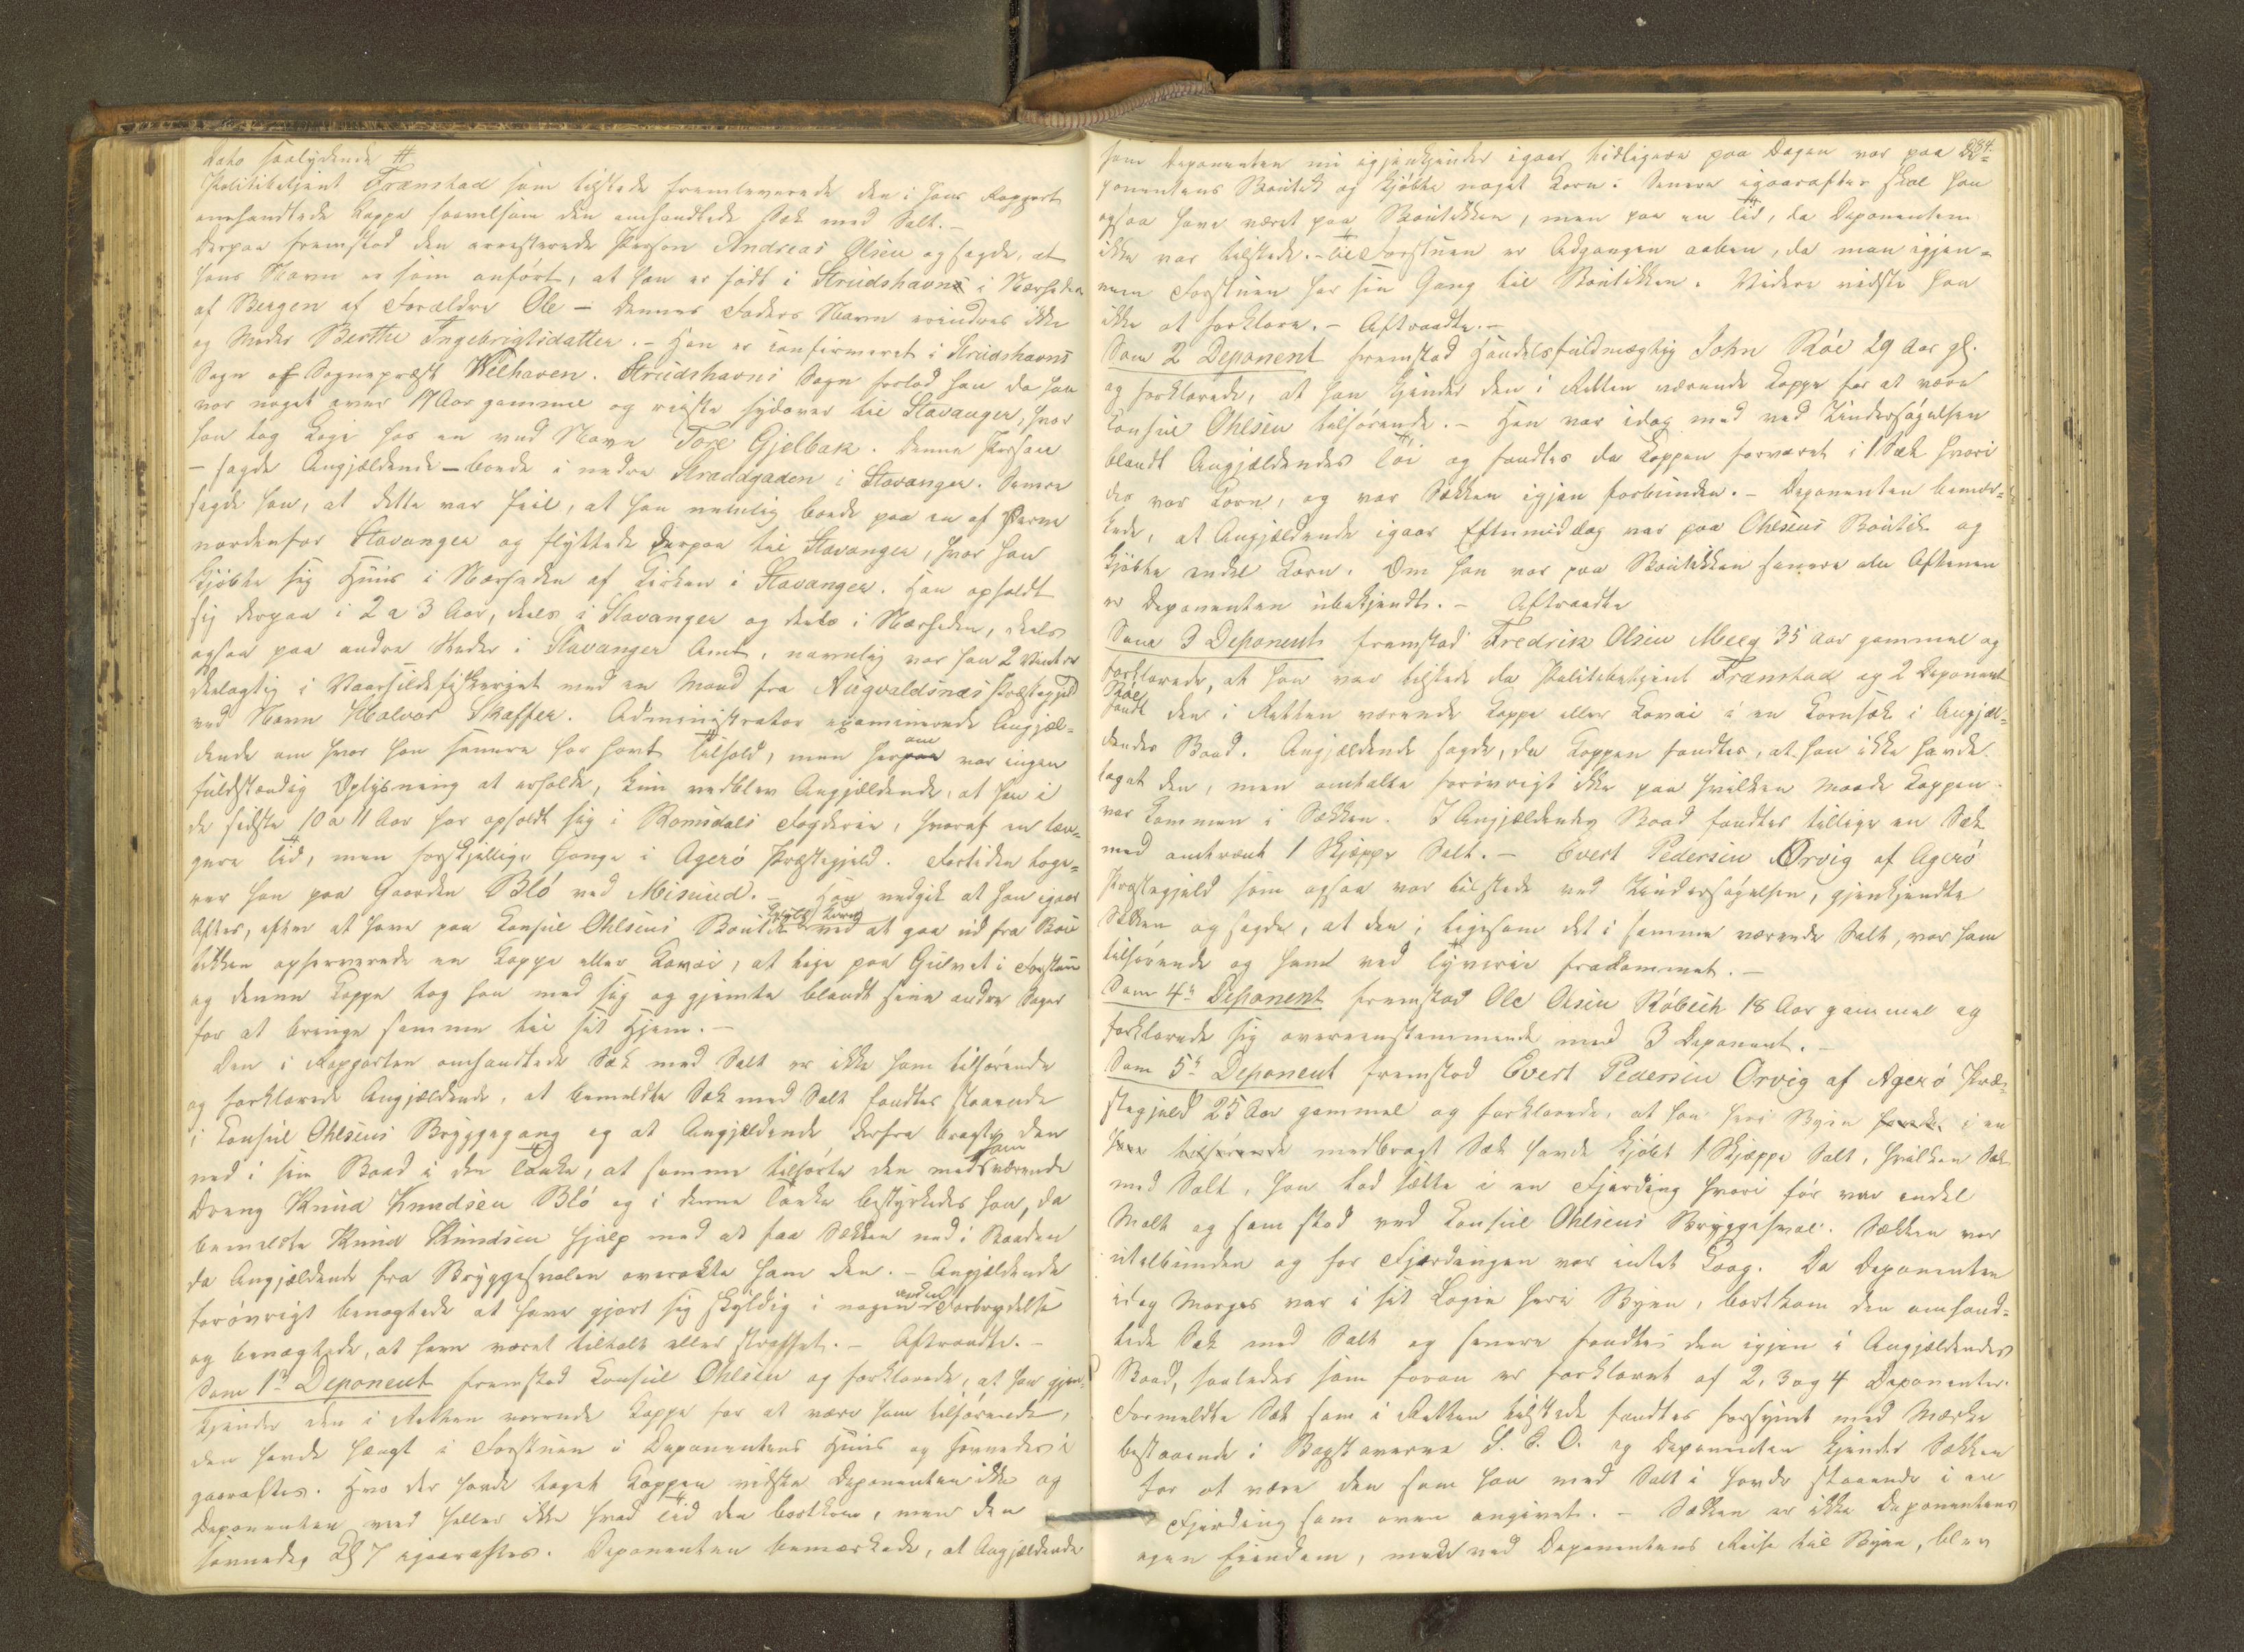 Dato saalydende #
Politibetjent Frænstad som tilstede fremleverede den i hans Rapport
omhandlede Kappe saavelsom den omhandlede Sæk med Salt. –
Derpaa fremstod den arresterede Person Andreas Olsen og sagde, at
hans Navn er som anført, at han er født i Strudshavns i Nærheden
af Bergen af Forældre Ole – dennes Faders Navn erindres ikke
og Moder Berthe Ingebrigtsdatter. – Han er confirmeret i Strudshavns
Sogn af Sognepræst Welhaven. Strudshavns Sogn forlod han da han
var noget over 17 Aar gammel og reiste sydover til Stavanger, hvor
han tog Logi hos en ved Navn Tore Gjelbak. Denne Person
– sagde Angjældende – boede i nedre Straddgaden i Stavanger. Senere
sagde han, at dette var feil, at han nemlig boede paa en af Øerne
nordenfor Stavanger og flyttede derpaa til Stavanger, hvor han
kjøbte sig Huus i Nærheden af Kirken i Stavanger. Han opholdt
sig derpaa i 2 a 3 Aar, deels i Stavanger og deels i Nærheden, deels
ogsaa paa andre Steder i Stavanger Amt, navnlig var han 2 Vintre
deelagtig i Vaarsildefiskeriet med en Mand fra Augvaldsnæs Præstegjeld
ved Navn Halvor Skaffer. Administrator examinerede Angjæl-
dende om hvor han senere har havt Tilhold, men herom var ingen
fuldstændig Oplysning at erholde, kun vedblev Angjældende, at han i
de sidste 10 a 11 Aar har opholdt sig i Romsdals Fogderie, hvoraf en læn-
gere Tid, men forskjellige Gange i Agerø Præstegjeld. Fortiden loge-
rer han paa Gaarden Blø ved Misund. – Han vedgik at han igaar
Aftes, efter at have paa Konsul Ohlsens Boutik kjøbt Korn ved at gaa ud fra Bou
tikken observerede en Kappe eller Kavai, at lige paa Gulvet i Forstuen
og denne Kappe tog han med sig og gjemte blandt sine andre Sager
for at bringe samme til sit Hjem. –
Den i Rapporten omhandlede Sæk med Salt er ikke ham tilhørende
og forklarede Angjældende, at bemeldte Sæk med Salt fandtes staaende
i Konsul Ohlsens Bryggegang og at Angjældende derfra bragte den
ned i sin Baad i den Tanke, at samme tilhørte den med ham værende
Dreng Knud Knudsen Blø og i denne Tanke bestyrkedes han, da
bemeldte Knud Knudsen hjalp med at faa Sækken ned i Baaden
da Angjældende fra Bryggesvalen overrakte ham den. – Angjældende
forøvrigt benegtede at have gjort sig skyldig i nogen anden Forbrydelse
og benægtede, at have været tiltalt eller straffet. – Aftraadte. –
Som 1ste Deponent fremstod Konsul Ohlsen og forklarede, at han gjen-
kjender den i Retten værende Kappe for at være ham tilhørende,
den havde hængt i Forstuen i Deponentens Huus og savnedes i
gaaraftes. Hvo der havde taget Kappen vidste Deponenten ikke og
Deponenten veed heller ikke hvad Tid den bortkom, men den
savnedes Kl 7 igaaraftes. Deponenten bemærkede, at Angjældende
som Deponenten nu igjenkjender igaar tidligere paa Dagen var paa De-
ponentens Boutik og kjøbte noget Korn. Senere igaaraftes skal han
ogsaa have været paa Boutikken, men paa en Tid, da Deponenten
ikke var tilstede. – Til Forstuen er Adgangen aaben, da man igjen-
nem Forstuen har sin Gang til Boutikken. Videre vidste han
ikke at forklare. – Aftraadte. –
Som 2 Deponent fremstod Handelsfuldmægtig John Röe 29 Aar gl.
og forklarede, at han kjender den i Retten værende Kappe for at være
Konsul Ohlsen tilhørende. – Han var idag med ved Undersøgelsen
blandt Angjældendes Tøi og fandtes da Kappen forvaret i 1 Sæk hvori
der var Korn, og var Sækken igjen forbunden. – Deponenten bemær-
kede, at Angjældende igaar Eftermiddag var paa Ohlsens Boutik og
kjøbte endel Korn. Om han var paa Boutikken senere ale Aftenen
er Deponenten ubekjendt. – Aftraadte
Som 3 Deponent fremstod Fredrik Olsen Meeg 35 Aar gammel og
forklarede, at han var tilstede da Politibetjent Frænstad og 2 Deponent
fandt den i Retten værende Kappe eller Kavai i en Kornsæk i Angjæl-
dendes Baad. Angjældende sagde, da Kappen fandtes, at han ikke havde
taget den, men omtalte forøvrigt ikke paa hvilken Maade Kappen
var kommen i Sækken. I Angjældendes Baad fandtes tillige en Sæk
med omtrent 1 Skjeppe Salt. – Evert Pedersen Orvig af Agerø
Præstegjeld som ogsaa var tilstede ved Undersøgelsen, gjenkjendte
Sækken og sagde, at den, ligesom det i samme værende Salt, var ham
tilhørende og ham ved Tyverie frakommet. –
Som 4de Deponent fremstod Ole Olsen Röbech 18 Aar gammel og
forklarede sig overeensstemmende med 3 Deponent. –
Som 5te Deponent fremstod Evert Pedersen Orvig af Agerø Præ-
stegjeld 25 Aar gammel og forklarede, at han her i Byen i en
ham tilhørende medbragt Sæk havde kjøbt 1 Skjæppe Salt, hvilken Sæk
med Salt, han lod sætte i en Fjerding hvori før var endel
Malt og som stod ved Konsul Ohlsens Bryggesval. Sækken var
utilbunden og for Fjerdingen var intet Laag. Da Deponenten
idag Morges var i sit Logie her i Byen, bortkom den omhand-
lede Sæk med Salt og senere fandtes den igjen i Angjældendes
Baad, saaledes som foran er forklaret af 2, 3 og 4 Deponenter.
Formeldte Sæk som i Retten tilstede fandtes forsynet med Mærke
bestaaende i Bogstaverne L. S. O. og Deponenten kjender Sækken
for at være den som han med Salt i havde staaende i en
Fjerding som oven angivet. – Sækken er ikke Deponentens
egen Eiendom, men ved Deponentens Reise til Byen, blev